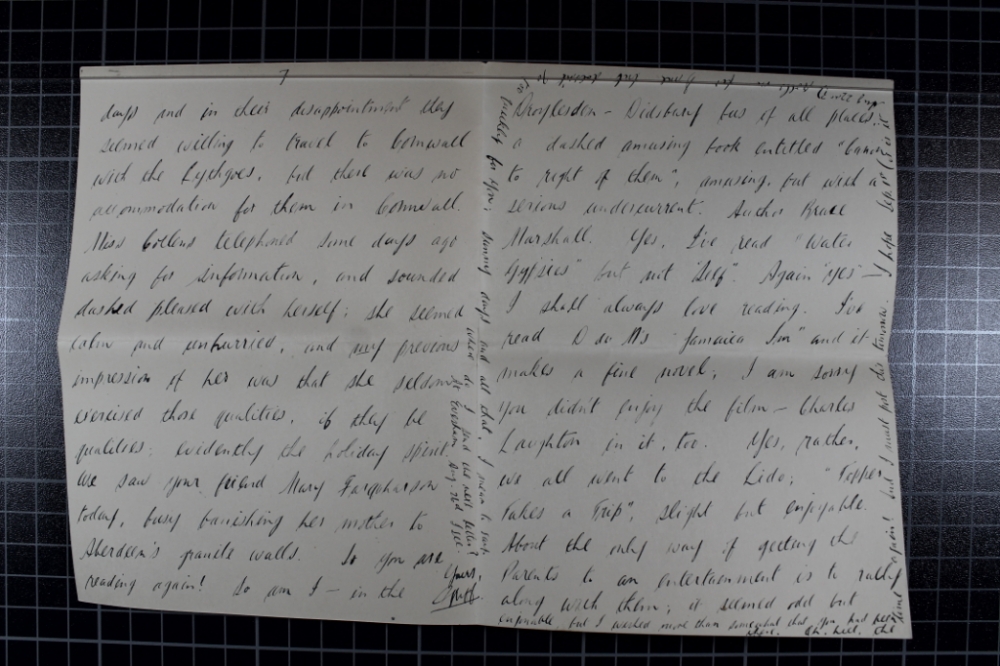 7
days and in their disappointment they
seemed willing to travel to Cornwall
with the Lythgoes, but there was no
accommodation for them in Cornwall.
Miss Collens telephoned some days ago
asking for information, and sounded
dashed pleased with herself; she seemed
calm and unhurried, and my previous
impression of her was that she seldom
exercised those qualities, if they be
qualities; evidently the holiday spirit.
We saw your friend Mary Farquharson
today, busy banishing her mother to
Aberdeen's granite walls. So you are
reading again! So am I — in the
Droylesden - Didsbury bus of all places:
a dashed amusing book entitled "Canon
to right of them", amusing, but with a
serious undercurrent. Author Bruce
Marshall. Yes, I've read "Water
Gypsies" but not "Self". Again "yes" —
I shall always love reading. I've
read D du M's "Jamaica Inn" and it
makes a fine novel; I am sorry
you didn't enjoy the film — Charles
Laughton in it, too. Yes, rather,
we all went to the Lido; "Topper
Takes a Trip", slight but enjoyable.
About the only way of getting the
Parents to an entertainment is to rally
along with them; it seemed odd but
enjoyable, but I wished more than somewhat that you had been
there. Oh, well, the
time again! But I must put
I hope
for you, sunny days and all that, I mean to say
what do I
Aug.
Yours,